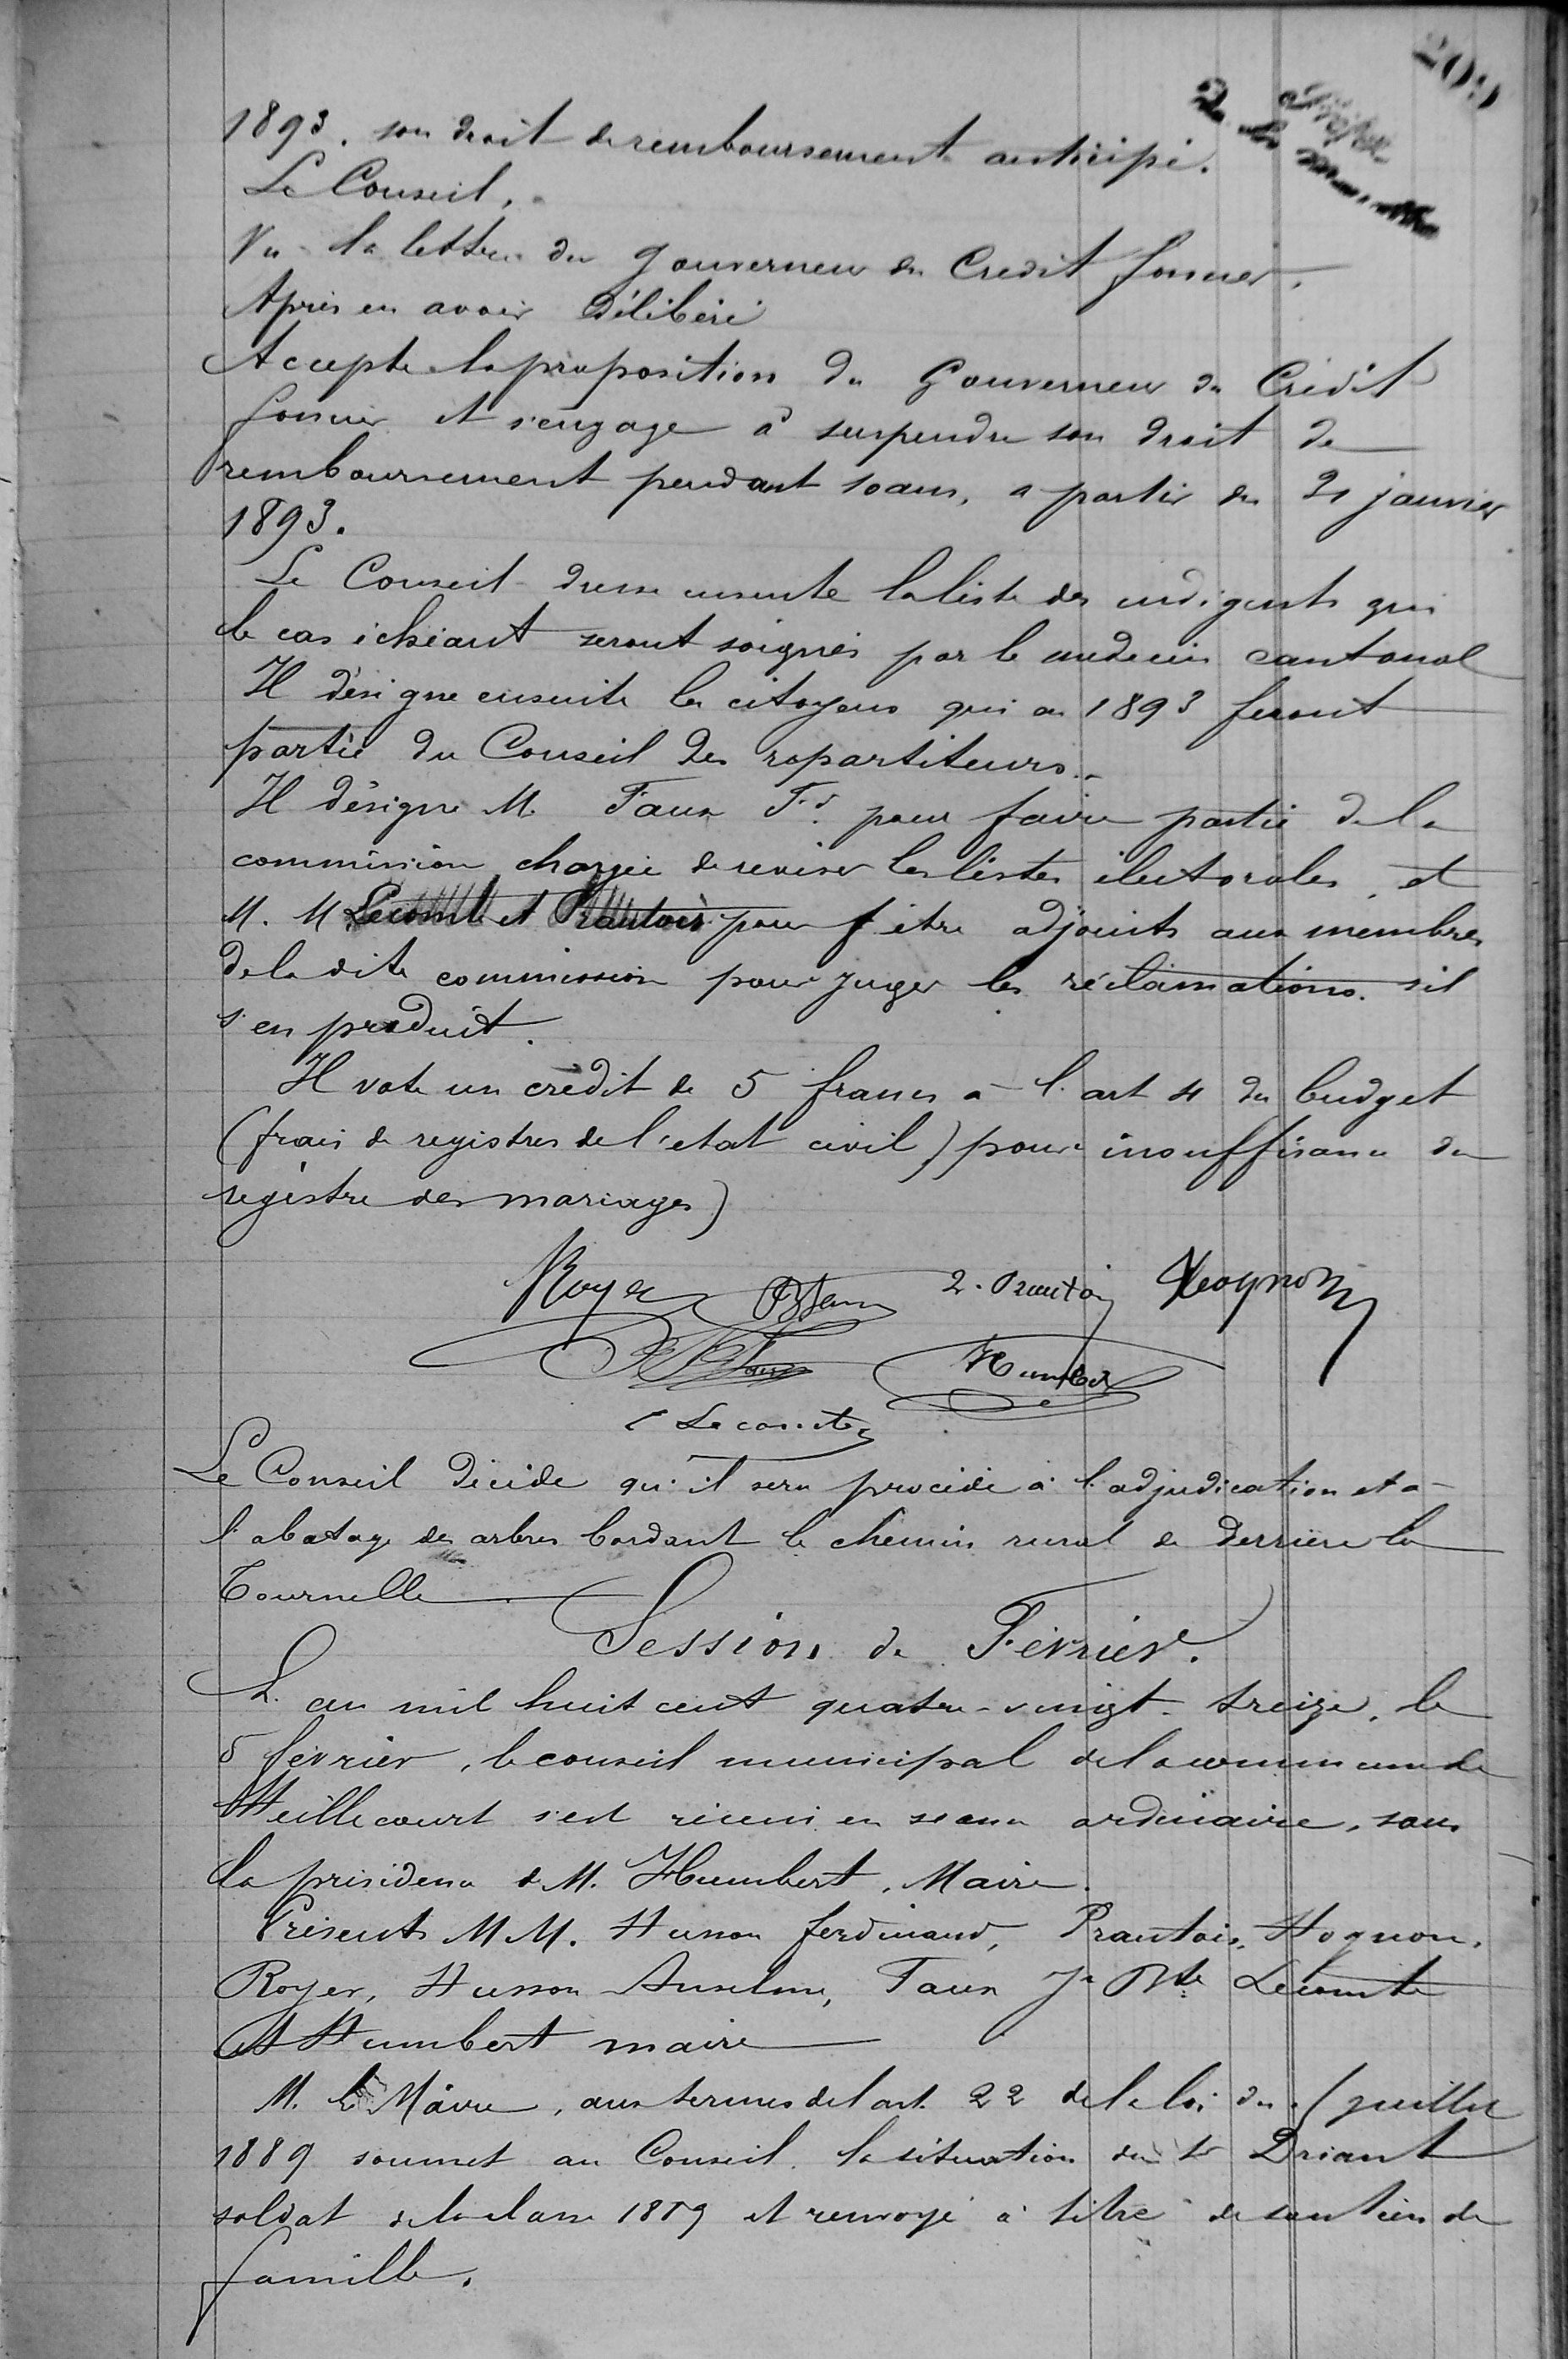 209
1893. son droit de remboursement anticipé.
Le Conseil,
Vu la lettre du Gouverneur du Credit foncier,
Après en avoir délibéré
Accepte la proposition du Gouverneur du Crédit
foncier et s'engage à suspendre son droit de
remboursement pendant 10 ans, a partir du 21 janvier
1893.
Le Conseil dresse ensuite la liste des indigents qui
le cas échéant seront soignés par le medecin cantonal
Il désigne ensuite les citoyens qui en 1893 feront
partie du Conseil des repartiteurs.
Il désigne M. Faux Fd. pour faire partie de la
commission chargée de reviser les listes électorales, et
M. M Lecomte et Prautois pour f être adjoints aux membres
de la dite commission pour juger les réclamations. s'il
s'en produit.
Il vote un crédit de 5 francs à l'art 4 du budget
(frais de registres de l'etat civil) pour insuffisance du
registre des mariages)
Royer 2. Prautois Hognon
Humbert
Lecomte
Le Conseil décide qu'il sera procédé à l'adjudication et à
l'abatage des arbres bordant le chemin rural de derrière la
Tournelle
Session de Février.
L'an mil huit cent quatre-vingt-treize, le
5 février, le conseil municipal de la commune de
Heillecourt s'est réuni en séance ordinaire, sous
la présidence de M. Humbert, Maire.
Présents M M. Husson ferdinand, Prautois, Hognon,
Royer, Husson Anselme, Faux Jn Bte Lecomte
et Humbert maire
M. le Maire, aux termes de l'art. 22 de la loi du juillet
1889 soumet au Conseil la situation du sr Driant
soldat de la classe 1889 et renvoyé à titre de soutien de
famille.